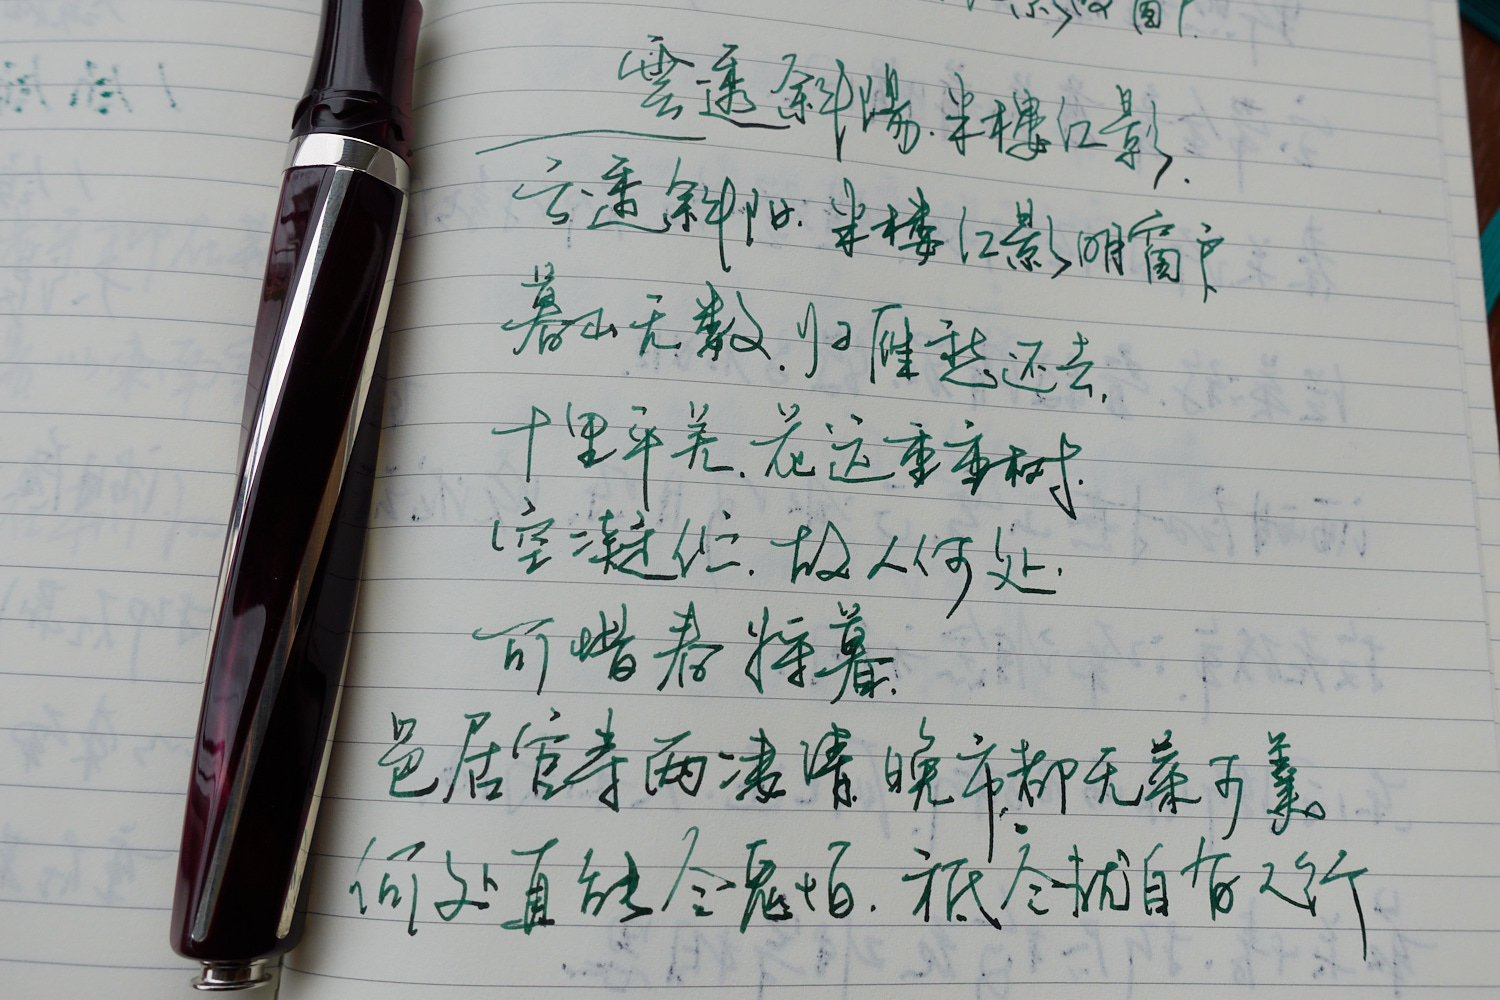 影 窗户
雲透斜陽.半楼红影.
云透斜阳.半楼红影明窗户
暮山无数.归雁愁还去.
十里平芜.花远重重树.
空凝伫.故人何处.
可惜春将暮.
邑居官寺两凄清晚市都无菜可羹。
何处直能令鬼怕.祗今犹自有人行